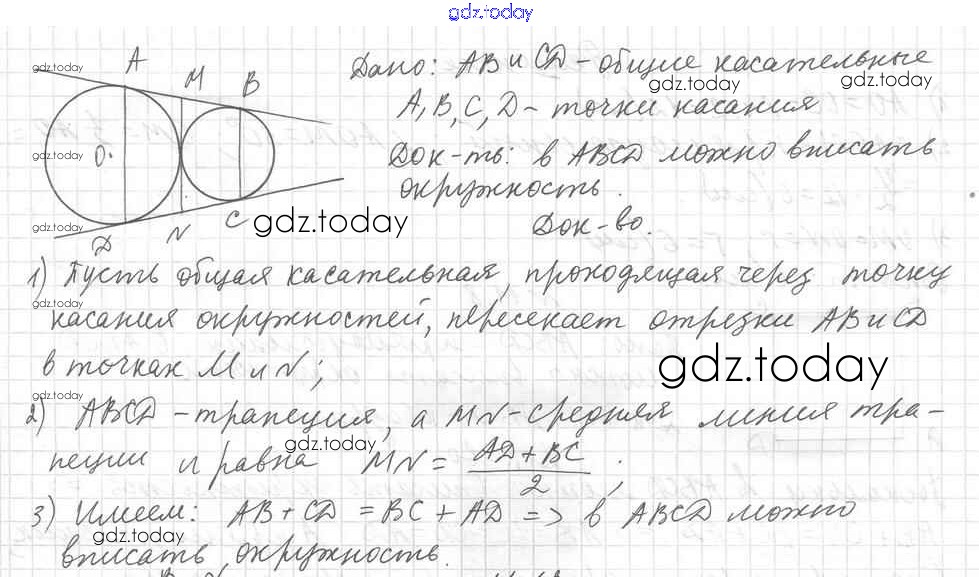 gdz.today
gdz.today
A
M
B
Дано: AB и CD - общие касательные
gdz.today
gdz.today
A, B, C, D - точки касания
gdz.today
O
Док-ть: в ABCD можно вписать
окружность.
gdz.today
D
N
C
gdz.today
Док-во.
1) Пусть общая касательная, проходящая через точку
gdz.today
касания окружностей, пересекает отрезки AB и CD
в точках M и N;
gdz.today
gdz.today
2) ABCD - трапеция, а MN - средняя линия тра-
gdz.today
пеции и равна MN = (AD + BC)/2;
3) Имеем: AB + CD = BC + AD => в ABCD можно
gdz.today
вписать окружность.